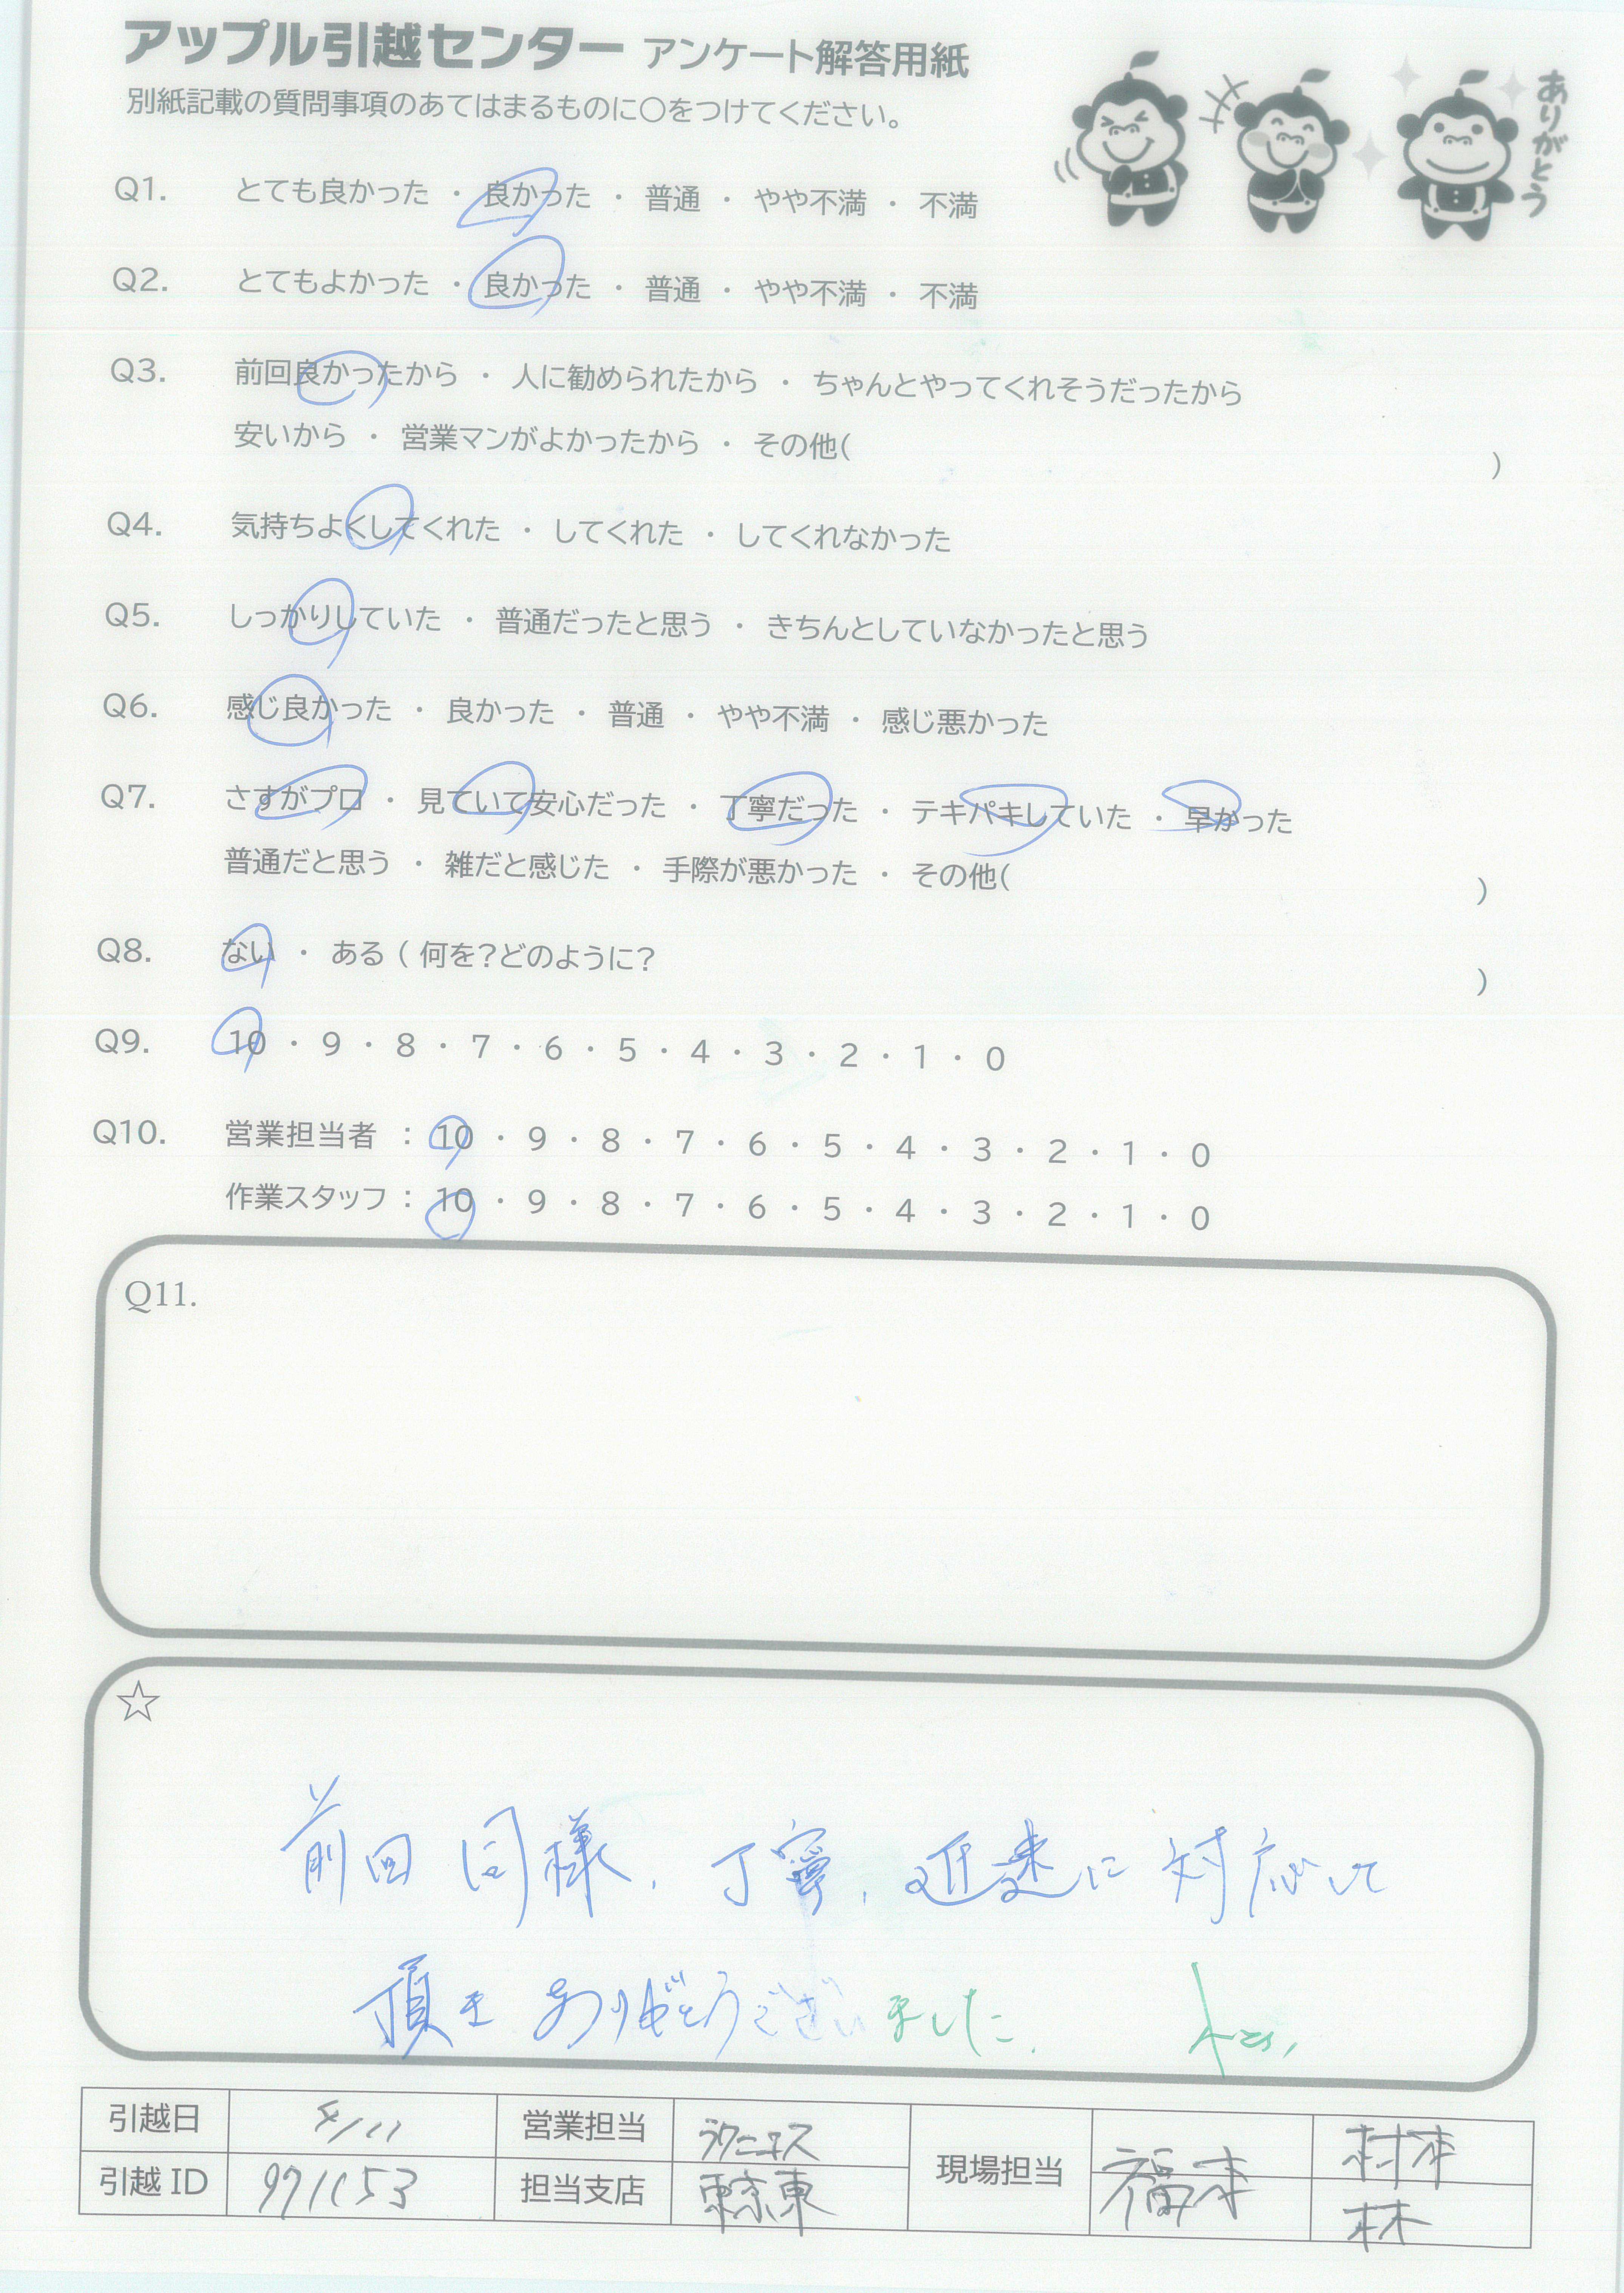 アップル引越センター アンケート解答用紙
別紙記載の質問事項のあてはまるものに〇をつけてください。
ありがとう
Q1. とても良かった ・ 良かった ・ 普通 ・ やや不満 ・ 不満
Q2. とてもよかった ・ 良かった ・ 普通 ・ やや不満 ・ 不満
Q3. 前回良かったから ・ 人に勧められたから ・ ちゃんとやってくれそうだったから
安いから ・ 営業マンがよかったから ・ その他( )
Q4. 気持ちよくしてくれた ・ してくれた ・ してくれなかった
Q5. しっかりしていた ・ 普通だったと思う ・ きちんとしていなかったと思う
Q6. 感じ良かった ・ 良かった ・ 普通 ・ やや不満 ・ 感じ悪かった
Q7. さすがプロ ・ 見ていて安心だった ・ 丁寧だった ・ テキパキしていた ・ 早かった
普通だと思う ・ 雑だと感じた ・ 手際が悪かった ・ その他( )
Q8. ない ・ ある ( 何を?どのように? )
Q9. 10 ・ 9 ・ 8 ・ 7 ・ 6 ・ 5 ・ 4 ・ 3 ・ 2 ・ 1 ・ 0
Q10. 営業担当者 : 10 ・ 9 ・ 8 ・ 7 ・ 6 ・ 5 ・ 4 ・ 3 ・ 2 ・ 1 ・ 0
作業スタッフ : 10 ・ 9 ・ 8 ・ 7 ・ 6 ・ 5 ・ 4 ・ 3 ・ 2 ・ 1 ・ 0
Q11.
☆
前回同様、丁寧、迅速に対応して
頂き ありがとうございました.
引越日 4/11 営業担当 現場担当 福本 村本
引越ID 971153 担当支店 東京東 林